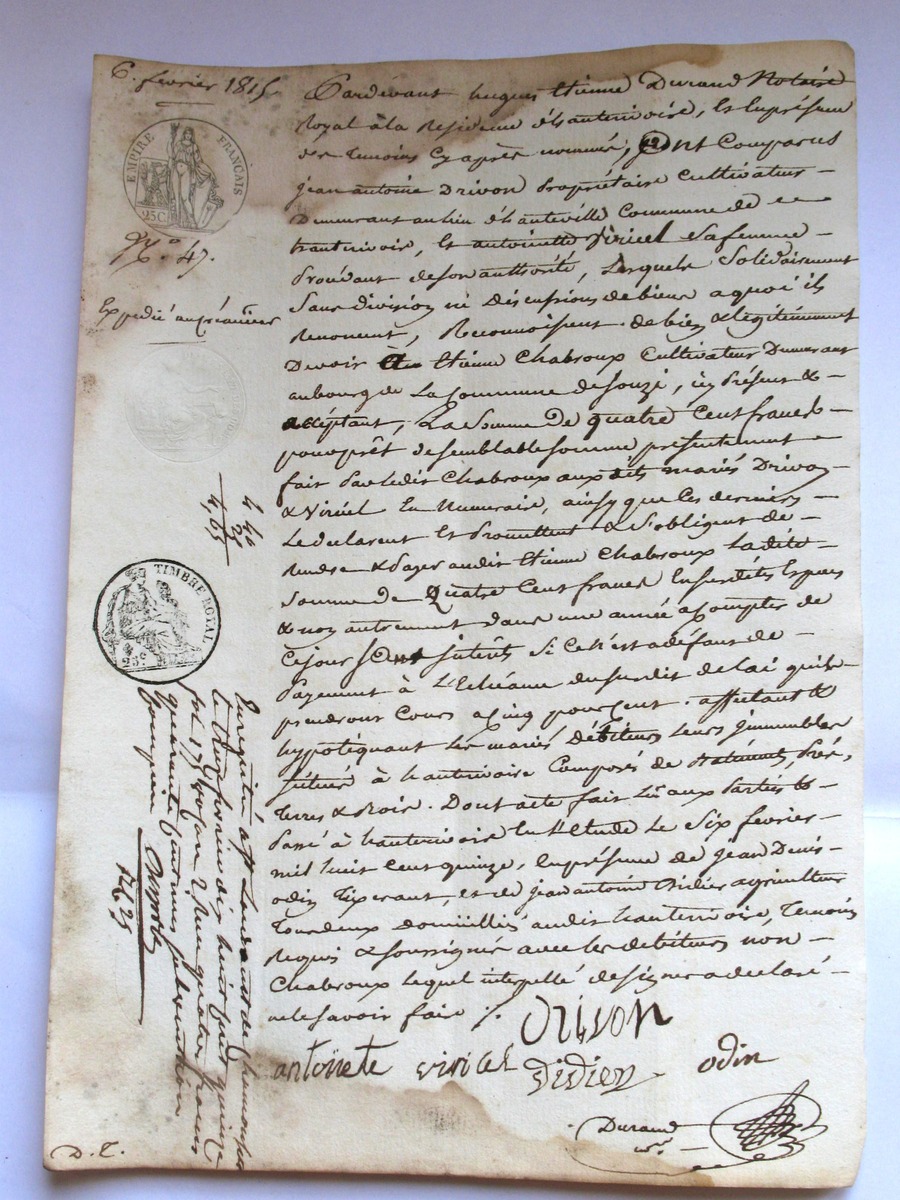 6. fevrier 1815
EMPIRE FRANÇAIS
25C
N.o 47.
Expedié au créancier
4 40
25
4,65
TIMBRE ROYAL
25c
Pardevant hugues Etienne Durand Notaire
Royal à la Residence d'hauterivoire, Et En présence
des Temoins Cy après nommés, sont Comparus
jean antoine Drivon Propriétaire Cultivateur
Demeurant au lieu d'hauteville Commune de
hauterivoire, Et antoinette Viricel sa femme
Procédant de son authorité, Lesquels Solidairement
Sans division ni Discussions de biens a quoi ils
Renoncent, Reconnoissent de bien & légitimement
Devoir à Etienne Chabroux Cultivateur Demeurant
au bourg de La Commune de Souzi, ici Présent &
acceptant, La Somme De quatre Cent francs
pour prêt de semblable somme présentement
fait Par ledit Chabroux aux dits mariés Drivon
& Viricel En Numeraire, ainsy que Ces derniers
Le declarent Et Promettent & S'obligent de
rendre & Payer audit Etienne Chabroux Ladite
Somme de Quatre Cent francs En susdites Especes
& non autrement dans une année a Compter de
Ce jour Sans intérêts Si Ce n'est a défaut de
Payement à L'Echéance du susdit delai qu'ils
prendront Cours a Cinq pour Cent. affectant &
hypotéquant Les mariés Débiteurs Leurs immeubles
situés à hauterivoire Composés de Batiments, Prés,
Terres & Bois. Dont acte fait Lû aux Parties &
Passé à hauterivoire En L'Etude Le Six fevrier
mil huit Cent quinze, En présence de jean Denis
odin Tixerant, et de jean antoine Didier agriculteur
Tous deux domiciliés audit hauterivoire, Temoins
Requis & soussignés avec les débiteurs non
Chabroux Lequel interpellé de signer a declaré
ne le savoir faire ./.
Drivon
antoinete viricel didier odin
Durand
nre
Enregistré à St Laurent de Chamousset
le treize fevrier dix huit cent quinze
fol. 179 Reçu quatre francs
quarante centimes subvention
comprise
D. T.